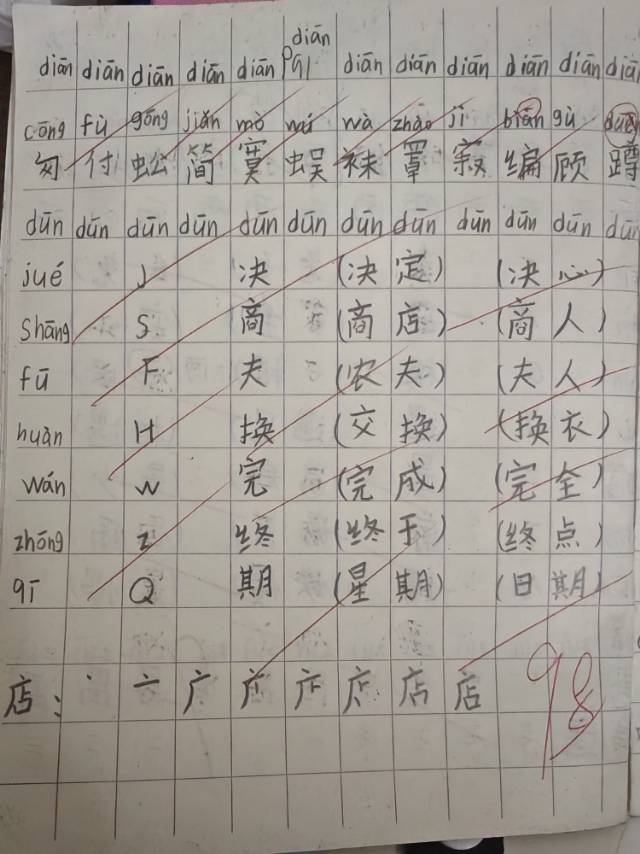 diān
diān diān diān diān diān qī diān diān diān diān diān diān
cōng fù gōng jiǎn mò wú wà zhào jì biān gù dūn
匆 付 蚣 简 寞 蜈 袜 罩 寂 编 顾 蹲
dūn dūn dūn dūn dūn dūn dūn dūn dūn dūn dūn dūn
jué J 决 (决定) (决心)
shāng S 商 (商店) (商人)
fū F 夫 (农夫) (夫人)
huàn H 换 (交换) (换衣)
wán W 完 (完成) (完全)
zhōng Z 终 (终于) (终点)
qī Q 期 (星期) (日期)
店: 丶 亠 广 店 店
98